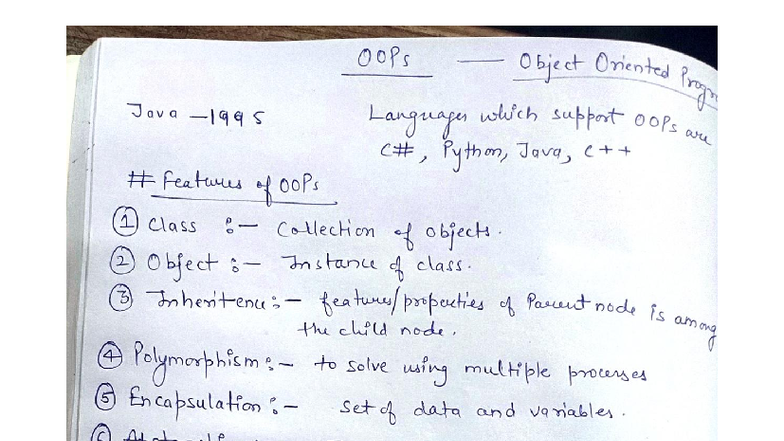 OOPs — Object Oriented Progr
Java - 1995 Languages which support OOPs are
C#, Python, Java, C++
# Features of OOPs
① Class :- Collection of objects.
② Object :- Instance of class.
③ Inheritence :- features/properties of Parent node is among
the child node.
④ Polymorphism :- to solve using multiple processes
⑤ Encapsulation :- set of data and variables.